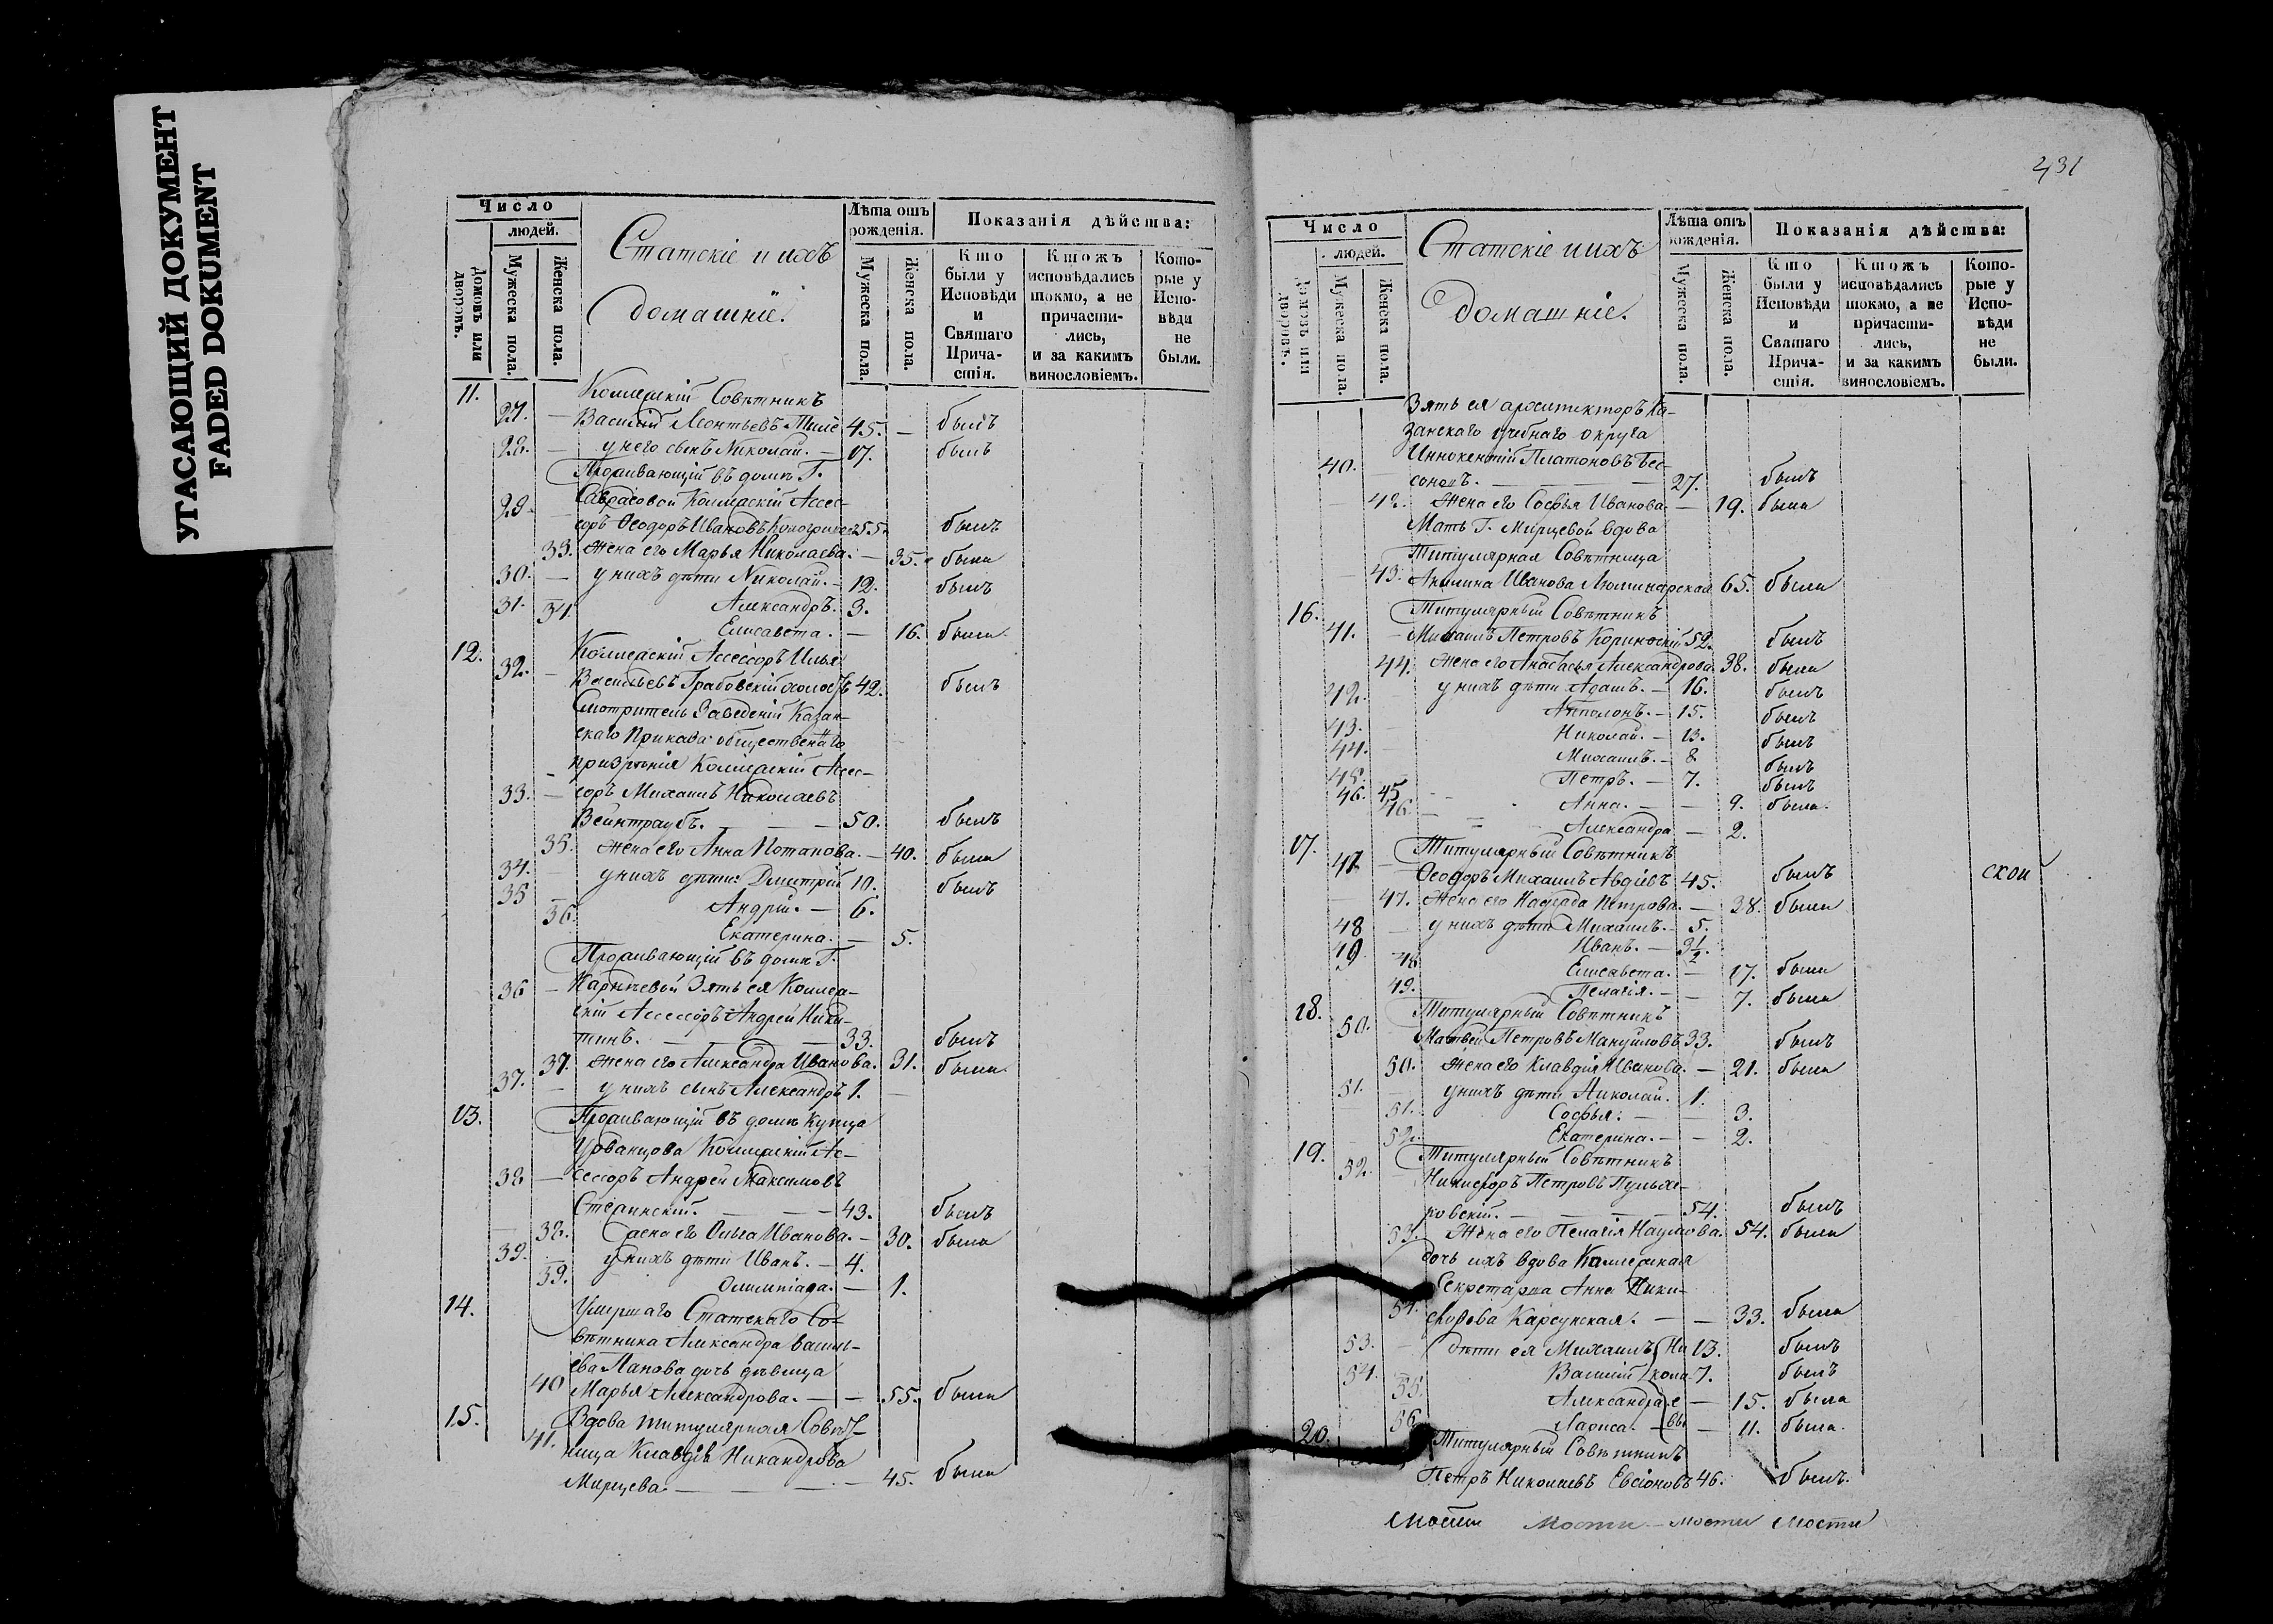 УГАСАЮЩИЙ ДОКУМЕНТ
FADED DOKUMENT
Число
людей.
Домовъ или дворовъ.
Мужеска пола.
Женска пола.
Статскіе и ихъ
домашніе.
Лѣта отъ рожденія.
Мужеска пола.
Женска пола.
Показанія дѣйства:
Кто были у Исповѣди и Святаго Причастія.
Ктожъ исповѣдались токмо, а не причастились, и за какимъ винословіемъ.
Которые у Исповѣди не были.
11. Коллежскій Совѣтникъ
27. — Василій Леонтьевъ 45. — былъ
28. — у него сынъ Николай. — 17. былъ
Проживающій въ домѣ Г.
29. — Саврасовой Коллежскій Ассес-
соръ Ѳеодоръ Ивановъ 55. былъ
33. Жена его Марья Николаева. — 35. была
30. — у нихъ дѣти Николай. — 12. былъ
31. Александръ. 3.
34. Елисавета. — 16. была
12. Коллежскій Ассессоръ Илья
32. — Васильевъ Грабовскій холостъ 42. былъ
Смотритель Заведеній Казан-
скаго Приказа общественнаго
призрѣнія Коллежскій Ассес-
33. — соръ Михаилъ Николаевъ
Вейнтраубъ. — 50. былъ
35. Жена его Анна Потапова. — 40. была
34. — у нихъ дѣти: Дмитрій 10. былъ
35 — Андрей. — 6.
36. Екатерина. — 5.
Проживающій въ домѣ Г.
36 — Зять ея Коллеж-
скій Ассессоръ Андрей Ники-
тинъ. — 33. былъ
37. Жена его Александра Иванова. 31. была
37. — у нихъ сынъ Александръ 1. —
13. Проживающій въ домѣ Купца
Урванцова Коллежскій Ас-
38 — сессоръ Андрей Максимовъ
43. былъ
38. Жена его Ольга Иванова. — 30. была
39. у нихъ дѣти Иванъ. — 4.
39. Олимпіада. — 1.
14. Умершаго Статскаго Со-
вѣтника Александра Василь-
ева Панова дочь дѣвица
40 Марья Александрова. — — 55. была
15. Вдова титулярная Совѣт-
41. ница Клавдія Никандрова
Мирцева. — 45. была
431
Число
людей.
Домовъ или дворовъ.
Мужеска пола.
Женска пола.
Статскіе и ихъ
домашніе.
Лѣта отъ рожденія.
Мужеска пола.
Женска пола.
Показанія дѣйства:
Кто были у Исповѣди и Святаго Причастія.
Ктожъ исповѣдались токмо, а не причастились, и за какимъ винословіемъ.
Которые у Исповѣди не были.
Зять ея архитекторъ Ка-
занскаго учебнаго округа
40. Иннокентій Платоновъ Бес-
соновъ. — 27. былъ
42. Жена его Софья Иванова. — 19. была
Мать Г. Мирцевой вдова
Титулярная Совѣтница
43. Акилина Иванова 65. была
16. Титулярный Совѣтникъ
41. — Михаилъ Петровъ Коринфскій 52. былъ
44. Жена его Анастасья Александрова 38. была
42. у нихъ дѣти Адамъ. — 16. былъ
43. Апполонъ. — 15. былъ
44. Николай. — 13. былъ
45. Михаилъ. — 8 былъ
46. Петръ. — 7. былъ
45 Анна. — 9. была.
46. Александра — 2.
17. Титулярный Совѣтникъ
47 — Ѳеодоръ Михаилъ Авдіевъ 45. былъ
47. Жена его Надежда Петрова. — 38. была
48 — у нихъ дѣти Михаилъ. — 5.
49 Иванъ. — 3½.
48 Елисавета. — 17. была
49. Пелагія. — 7. была
18. Титулярный Совѣтникъ
50. Матвей Петровъ Мануйловъ 33. былъ
50. Жена его Клавдія Иванова. — 21. была
51. у нихъ дѣти Николай. 1.
51. Софья. — 3.
52. Екатерина. — 2.
19. Титулярный Совѣтникъ
52. Никифоръ Петровъ Пульхе-
ровскій. — 54. былъ
53. Жена его Пелагія Наумова. 54. была
дочь ихъ вдова Коллежская
Секретарша Анна Ники-
54. форова Карсунская. — — 33. была
53. — дѣти ея Михаилъ Ни 13. былъ
54. Василій кола 7. былъ
55. Александра е — 15. была
56. Лариса. вы — 11. была.
20. Титулярный Совѣтникъ
Петръ Николаевъ Евсіоновъ 46. былъ.
скои
мости мости — мости мости